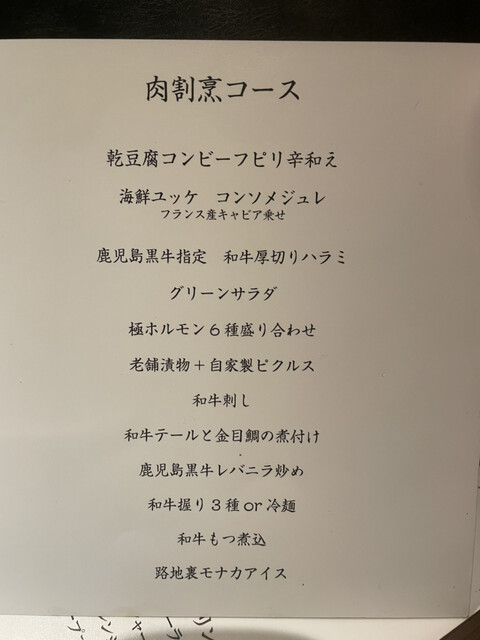 肉割烹コース
乾豆腐コンビーフピリ辛和え
海鮮ユッケ　コンソメジュレ
フランス産キャビア乗せ
鹿児島黒牛指定　和牛厚切りハラミ
グリーンサラダ
極ホルモン６種盛り合わせ
老舗漬物＋自家製ピクルス
和牛刺し
和牛テールと金目鯛の煮付け
鹿児島黒牛レバニラ炒め
和牛握り３種or冷麺
和牛もつ煮込
路地裏モナカアイス